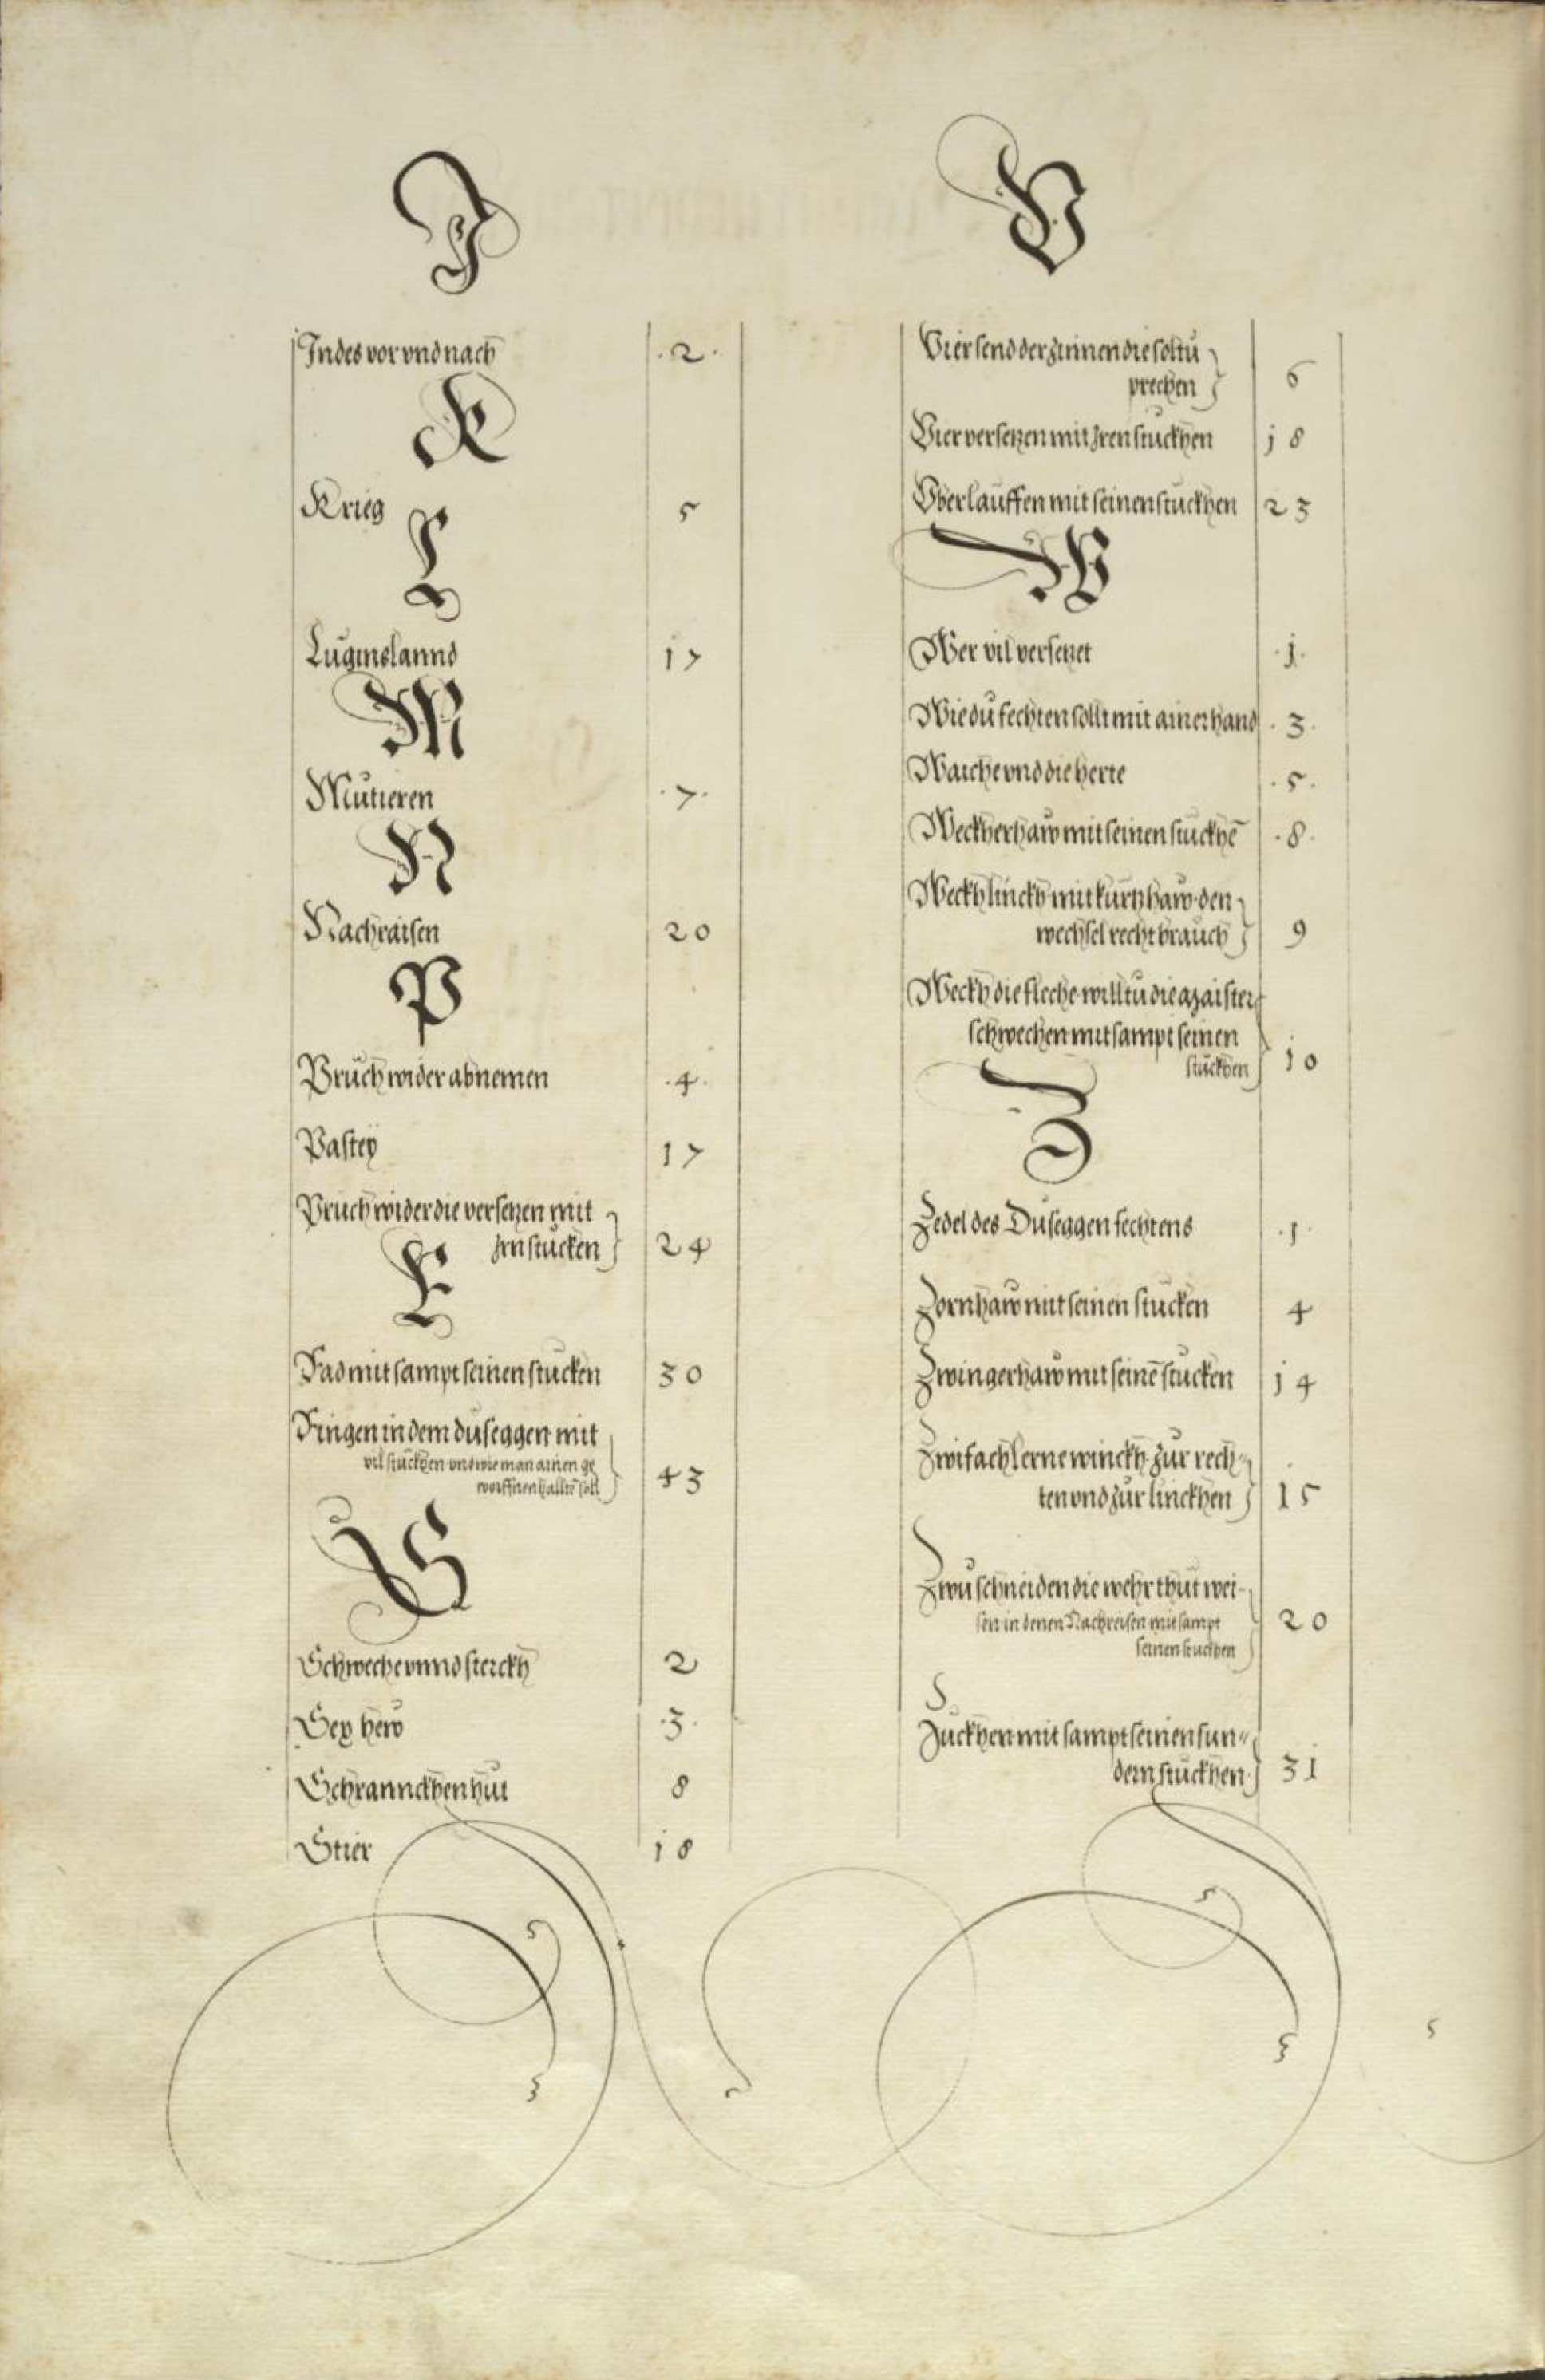 I
Indes vor vnd nach 2
K
Krieg 5
L
Luginslannd 17
M
Mutieren 7
N
Nachraisen 20
P
Bruch wider abnemen 4
Pastey 17
Pruch wider die versetzen mit
jrn stucken 24
R
Rad mit sampt seinen stucken 30
Ringen in dem duseggen mit
vil stuckhen vnd wie man ainen ge
worffnen halltē soll 43
S
Schweche vnnd sterckh 2
Sex hew 3
Schranckhenhut 8
Stier 18
V
Vier send der zinnen die soltu
prechen 6
Vier versetzen mit jren stuckhen 18
Vberlauffen mit seinen stuckhen 23
W
Wer vil versetzet 1
Wie du fechten sollt mit ainer hand 3
Waiche vnd die herte 5
Weckherhaw mit seinen stuckhē 8
Weckh linckh mit kurtzhaw den
wechsel recht brauch 9
Weckh die fleche willtu die maister
schwechen mit sampt seinen
stuckhen 10
Z
Zedel des Duseggen fechtens 1
Zornhaw mit seinen stucken 4
Zwingerhaw mit seinē stucken 14
Zwifach lerne winckh zur rech-
ten vnd zur linckhen 15
Zwu schneiden die wehr thut wei-
sen in denen Nachreisen mit sampt
seinen stuckhen 20
Zuckhen mit sampt seinen sun-
dern stuckhen 31